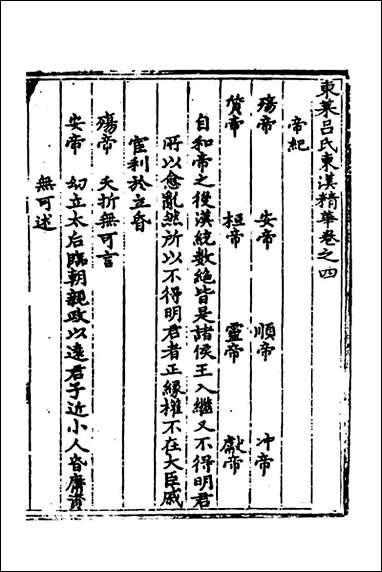 東萊呂氏東漢精華卷之四
帝紀
殤帝 安帝 順帝 冲帝
質帝 桓帝 靈帝 獻帝
自和帝之後漢統數絶皆是諸侯王入繼又不得明君
所以愈亂然所以不得明君者正緣權不在大臣戚
宦利於立昏
殤帝 夭折無可言
安帝 幼立太后臨朝親政以遠君子近小人昏庸
無可述